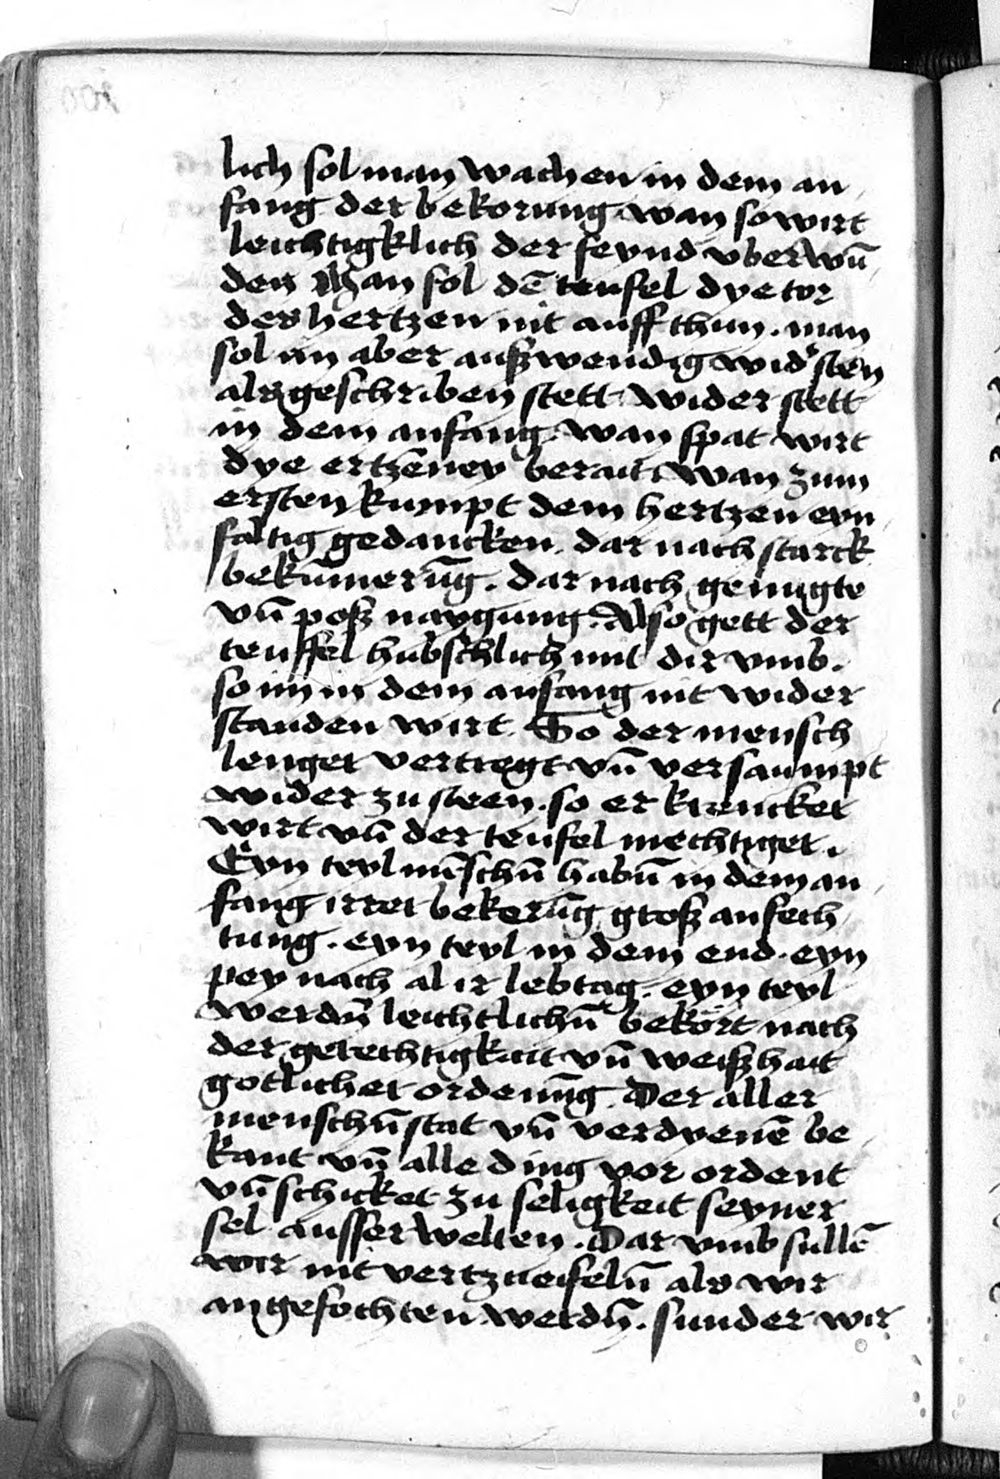 lich sol man wachen in dem an
fang der bekorung wan so wirt
leichtigklich der feynd uberwū
den Man sol dē teufel dye tor
des hertzen nit auff thun. man
sol im aber außwendig wid'sten
als geschriben stett wider stett
in dem anfang. wan spat wirt
dye ertzeney berait wan zum
ersten kumpt dem hertzen eyn
faltig gedancken. dar nach starck
bekūmerūg. dar nach genugte
vn̄ poß naygung. Also gett der
teuffel hubschlich mit dir vmb.
so im in dem anfang nit wider
standen wirt. So der mensch
lenger vertregt vn̄ versaumpt
wider zu steen. so er krencker
wirt vn̄ der teufel mechtiger.
Eyn teyl mēschn̄ habn̄ in dem an
fang irrer bekerūg groß anfech
tung. eyn teyl in dem end. eyn
pey nach al ir lebtag. eyn teyl
werdn̄ leichtlichn̄ bekort nach
der gerechtigkait vn̄ weißhait
gotlicher ordenūg. Der aller
menschn̄ stat vn̄ verdyenē be
kant vn̄ alle ding vor ordent
vn̄ schicket zu seligkeit seyner
sel ausserwelten. Dar vmb sullē
wir nit vertzueifeln̄ als wir
angefochten werdn̄. sunder wir